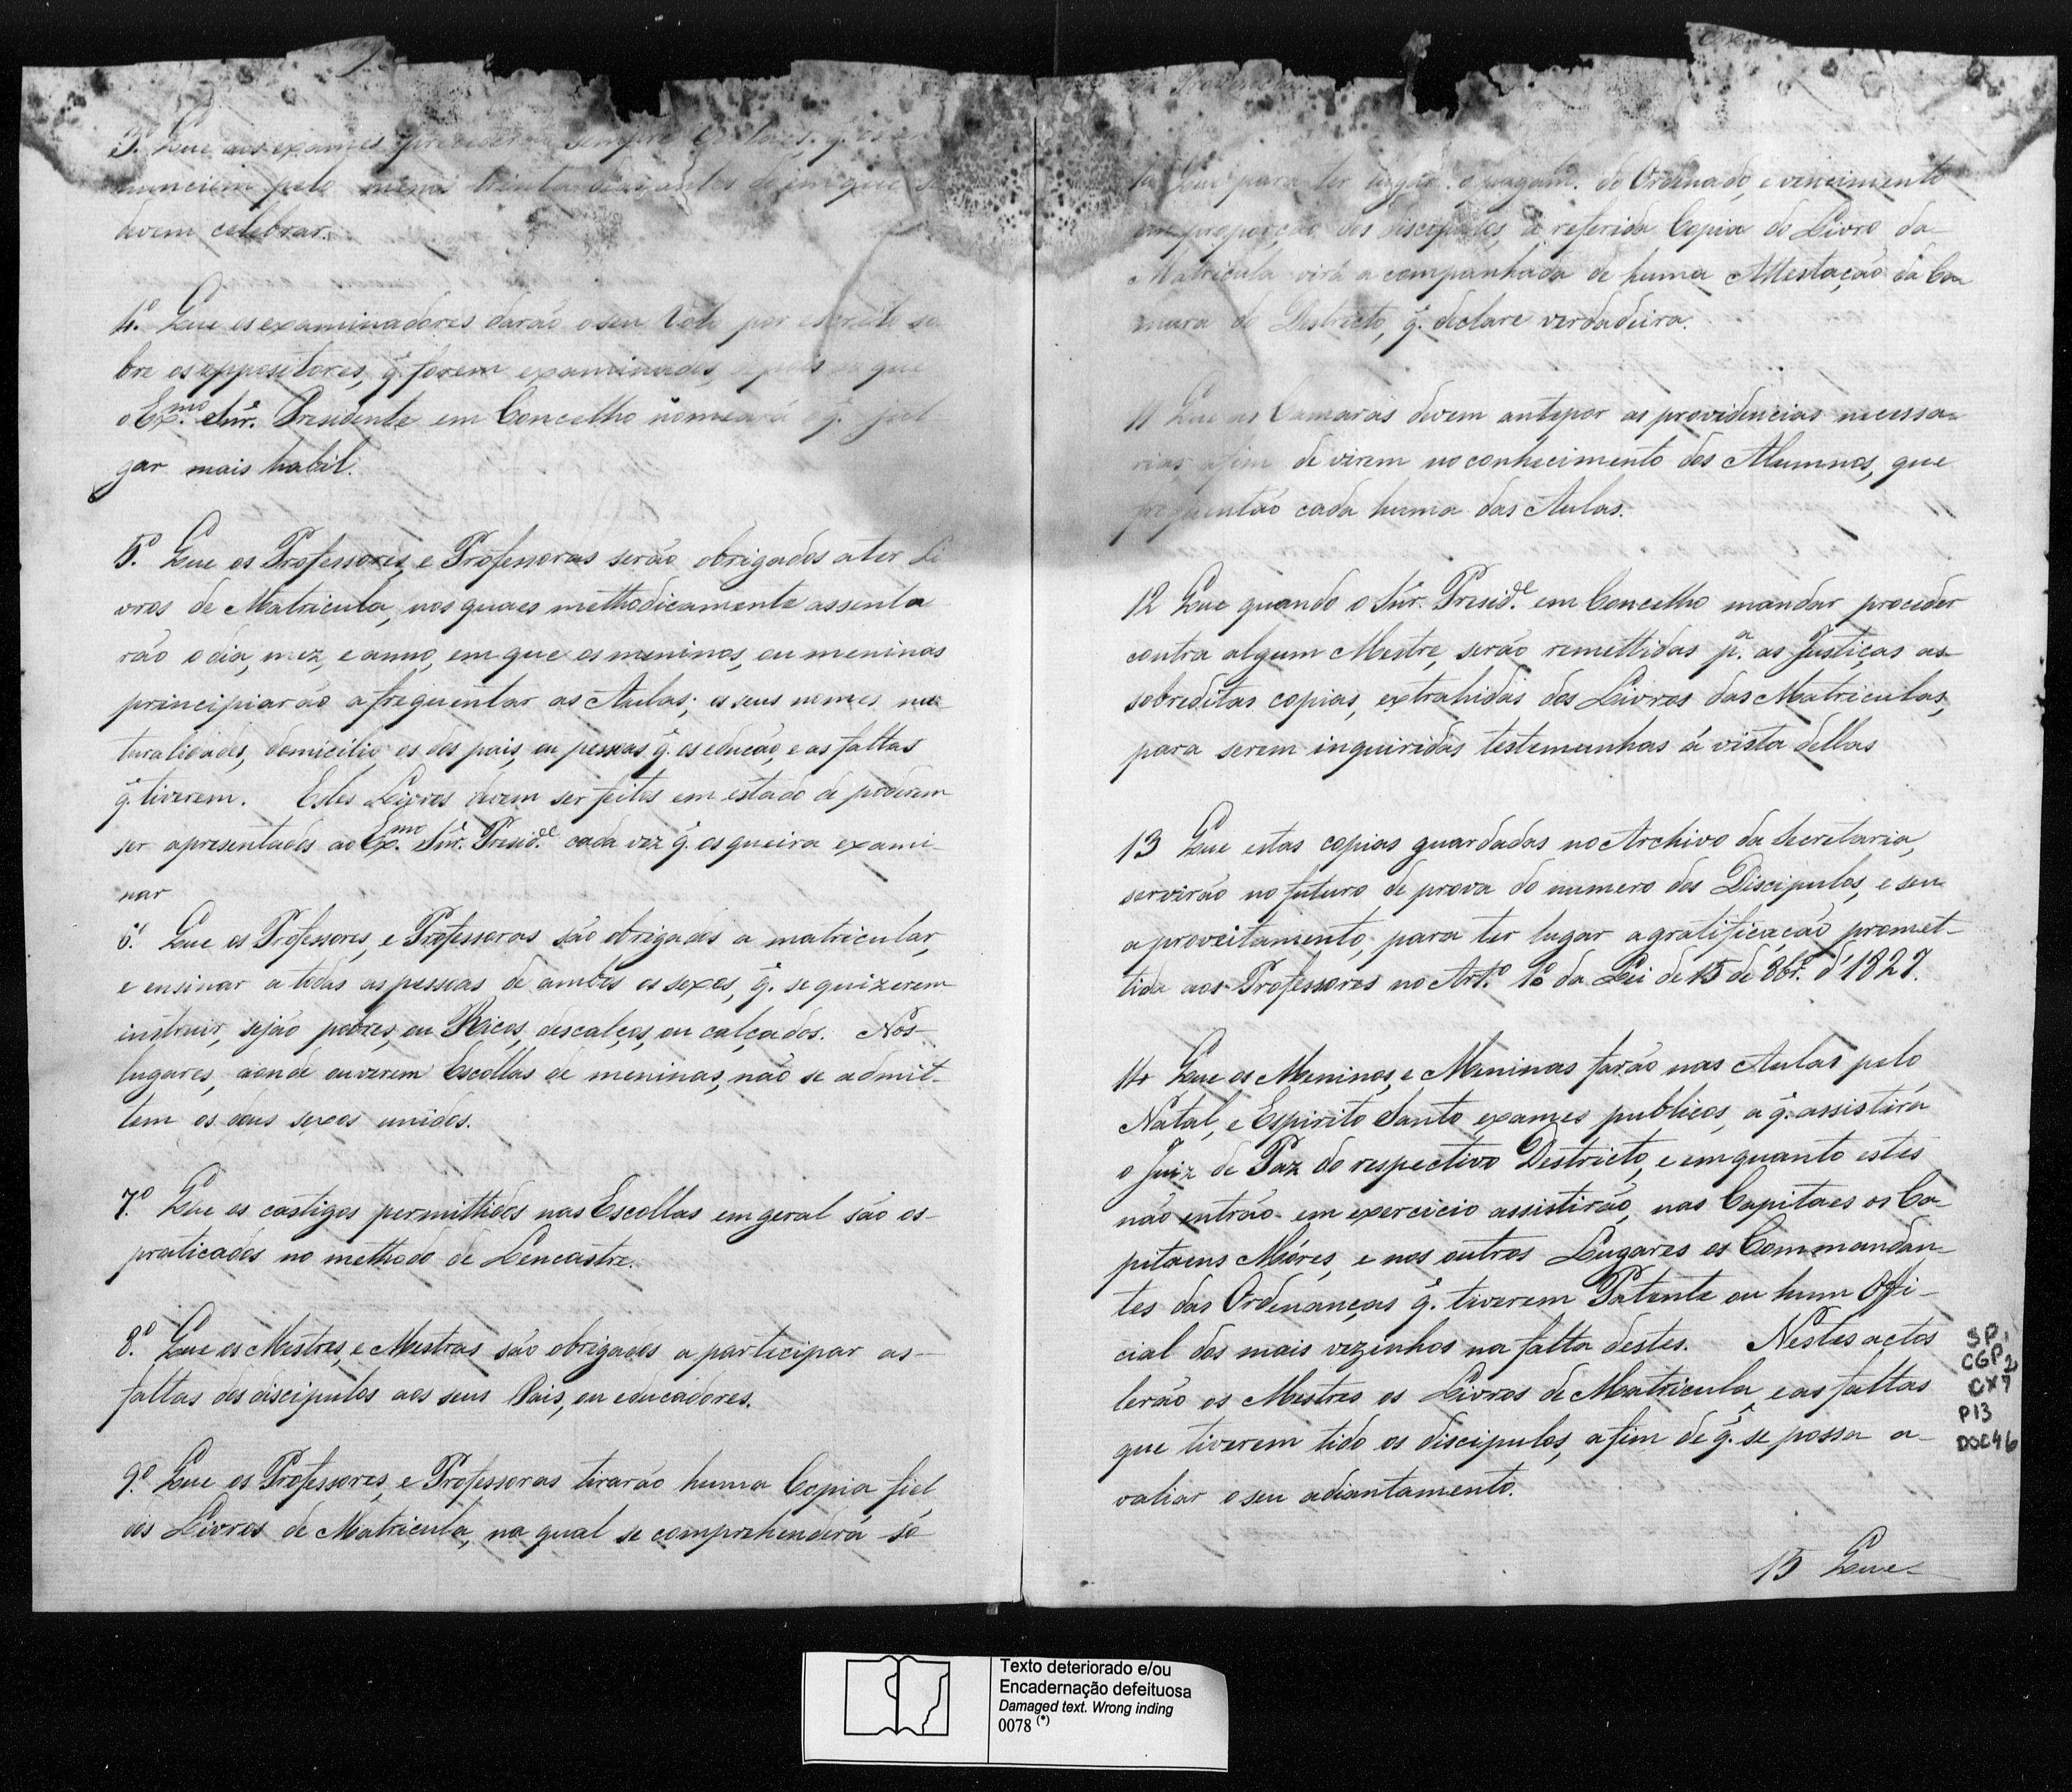 3.º Que aos exames precederão sempre Editaes, q̃.
nunciem pelo menos trinta dias antes do em que se
devem celebrar.
4.º Que os examinadores darão o seu Voto por escrito so
bre os oppositores, q̃. forem examinados, depois do que
o Ex.mo Snr. Presidente em Concelho nomeará o q̃. jul
gar mais habil.
5.º Que os Professores, e Professoras serão obrigados a ter Li
vros de Matricula, nos quaes methodicamente assenta
rão o dia, mez, e anno, em que os meninos, ou meninas
principiarão a frequentar as Aulas; os seus nomes, na-
turalidades, domicilio, os dos pais, ou pessoas q̃. os educão, e as faltas
q̃. tiverem. Estes Livros devem ser feitos em estado de poderem
ser apresentados ao Ex.mo Snr. Presid.e cada vez q̃. os queira exami-
nar
6.º Que os Professores, e Professoras são obrigados a matricular,
e ensinar a todas as pessoas de ambos os sexos, q̃. se quizerem
instruir, sejão pobres, ou Ricos, descalços, ou calçados. Nos
lugares, aonde ouverem Escollas de meninas, não se admit-
tem os dous sexos unidos.
7.º Que os castigos permittidos nas Escollas em geral são os-
praticados no methodo de Lencastre.
8.º Que os Mestres, e Mestras são obrigados a participar as-
faltas dos discipulos aos seus Pais, ou educadores.
9.º Que os Professores, e Professoras tirarão huma Copia fiel
dos Livros de Matricula, na qual se comprehenderá só
10 Que para ter lugar o pagam. do Ordenado, e vencimento
em proporção dos discipulos, a referida Copia do Livro da
Matricula virá acompanhada de huma Attestação da Ca
mara do Destricto, q̃. declare verdadeira.
11 Que as Camaras devem antepor as providencias necessa-
rias afim de virem no conhecimento dos Alumnos, que
frequentão cada huma das Aulas.
12 Que quando o Snr. Presid.e em Concelho mandar proceder
contra algum Mestre, serão remettidas p.a as Justiças as
sobreditas copias, extrahidas dos Livros das Matriculas,
para serem inquiridas testemunhas á vista dellas
13 Que estas copias guardadas no Archivo da Secretaria,
servirão no futuro de prova do numero dos Discipulos, e seu
aproveitamento, para ter lugar a gratificação promet-
tida aos Professores no Art.º 10 da Lei de 15 de 8br.º d'1827.
14 Que os Meninos, e Meninas farão nas Aulas pelo
Natal, e Espirito Santo exames publicos, a q̃. assistirá
o Juiz de Paz do respectivo Destricto, e emquanto estes
não entrão em exercicio assistirão, nas Capitaes os Ca-
pitaens Móres, e nos outros Lugares os Commandan-
tes das Ordenanças q̃. tiverem Patente ou hum Offi-
cial dos mais vezinhos na falta destes. Nestes actos
lerão os Mestres os Livros de Matricula, e as faltas
que tiverem tido os discipulos, afim de q̃. se possa a-
valiar o seu adiantamento.
15 Que-
SP,
CGP 2
CX7
P13
DOC46
Texto deteriorado e/ou
Encadernação defeituosa
Damaged text. Wrong inding
0078 (*)